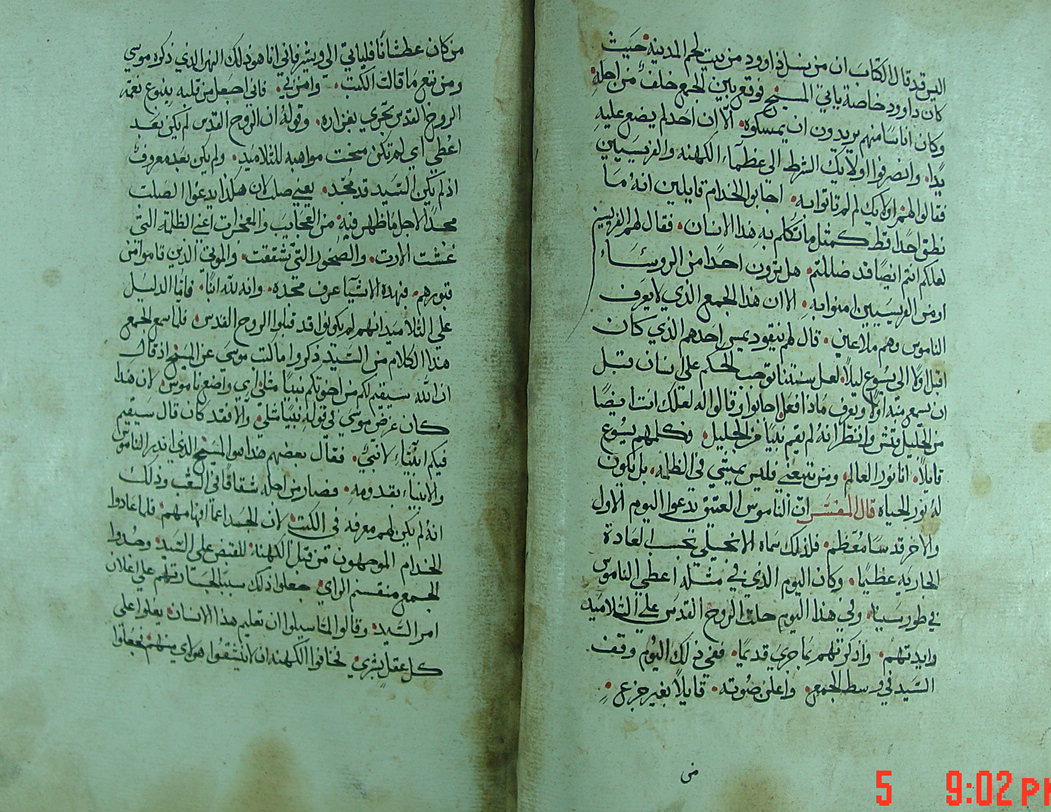 اليس قد قال الكتاب ان من نسل داوود من بيت لحم المدينة حيث
كان داوود خاصة ياتي المسيح فوقع بين الجمع خلف من اجله
وكان اناسا منهم يريدون ان يمسكوه الا ان احد لم يضع عليه
يدا وانصرفوا اولايك الشرط الى عظماء الكهنه والفريسيين
فقالوا لهم اولايك لم لم تاتوا به اجابوا الخدام قايلين انه ما
نطق احد قط كمثل ما تكلم به هذا الانسان فقال لهم الفريسيين
لعلكم انتم ايضا قد ضللتم هل ترون احدا من الروساء
او من الفريسيين امنوا به الا ان هذا الجمع الذي لا يعرف
الناموس وهم ملاعين قال لهم نيقوديمس احدهم الذي كان
اقبل اولا الى يسوع ليلا لعل سنتنا توجب الحكم على انسان قبل
ان تسمع منه اولا وتعرف ماذا فعل اجابوا وقالوا له لعلك انت ايضا
من الجليل فتش وانظر انه لم يقم نبيا من الجليل وكلمهم يسوع
قايلا انا نور العالم ومن تبعني فليس يمشي في الظلمه بل تكون
له نور الحياه قال المفسر ان الناموس العتيق تدعوا اليوم الاول
والاخر قد سا معظم فلذلك سماه الانجيلي بحسب العادة
الجاريه عظيما وكان اليوم الذي في مثله اعطي الناموس
في طور سينا وفي هذا اليوم حلت الروح القدس على التلاميذ
وايدتهم واذكرتهم بما جرى قديما ففي ذلك اليوم وقف
السيد في وسط الجمع واعلن صوته قايلا بغير جزع
من
من كان عطشانا فلياتي الي ويشرب فاني انا هو ذلك النهر الذي ذكره موسى
ومن تبع ما قالت الكتب وامن بي فاني اجعل من قلبه ينبوع نعمه
الروح القدس تجري بغزاره وقوله ان الروح القدس لم يكن بعد
اعطي اي لم تكن سخت مواهبه للتلاميذ ولم يكن بعد معروف
اذ لم يكن السيد قد مجد يعني صلب لان هكذا يدعوا الصلب
مجدا لاجل ما ظهر فيه من العجايب والمعجزات اعني الظلمة التي
غشت الارض والصخور التي تشققت والموتى الذين قاموا من
قبورهم فبهذه الاشيا عرف مجده وانه لله ابنا فاما الدليل
على التلاميذ انهم لم يكونوا قد قبلوا الروح القدس فلما سمع الجمع
هذا الكلام من السيد ذكروا ما كتب موسى عن المسيح اذ قال
ان الله سيقيم لكم من اخوتكم نبيا مثلي اي واضع ناموس لان هذا
كان غرض موسى في قوله نبيا مثلي والا فقد كان قال سيقيم
فيكم انبياء لا نبي فقال بعضهم هذا هو المسيح الذي انذر الناموس
والانبياء بقدومه فصار من اجله شقاقا في الشعب وذلك
انه لم يكن لهم معرفه في الكتب لان الحسد اعما افهامهم فلما عادوا
الخدام الموجهون من قبل الكهنة للقبض على السيد وجدوا
الجمع منقسم الراي جعلوا ذلك سببا لجسارتهم على اعلان
امر السيد وقالوا لما سيلوا ان تعليم هذا الانسان يعلوا على
كل عقل بشري فخافوا الكهنه ان لا تشقوا هولاي منهم فجعلوا